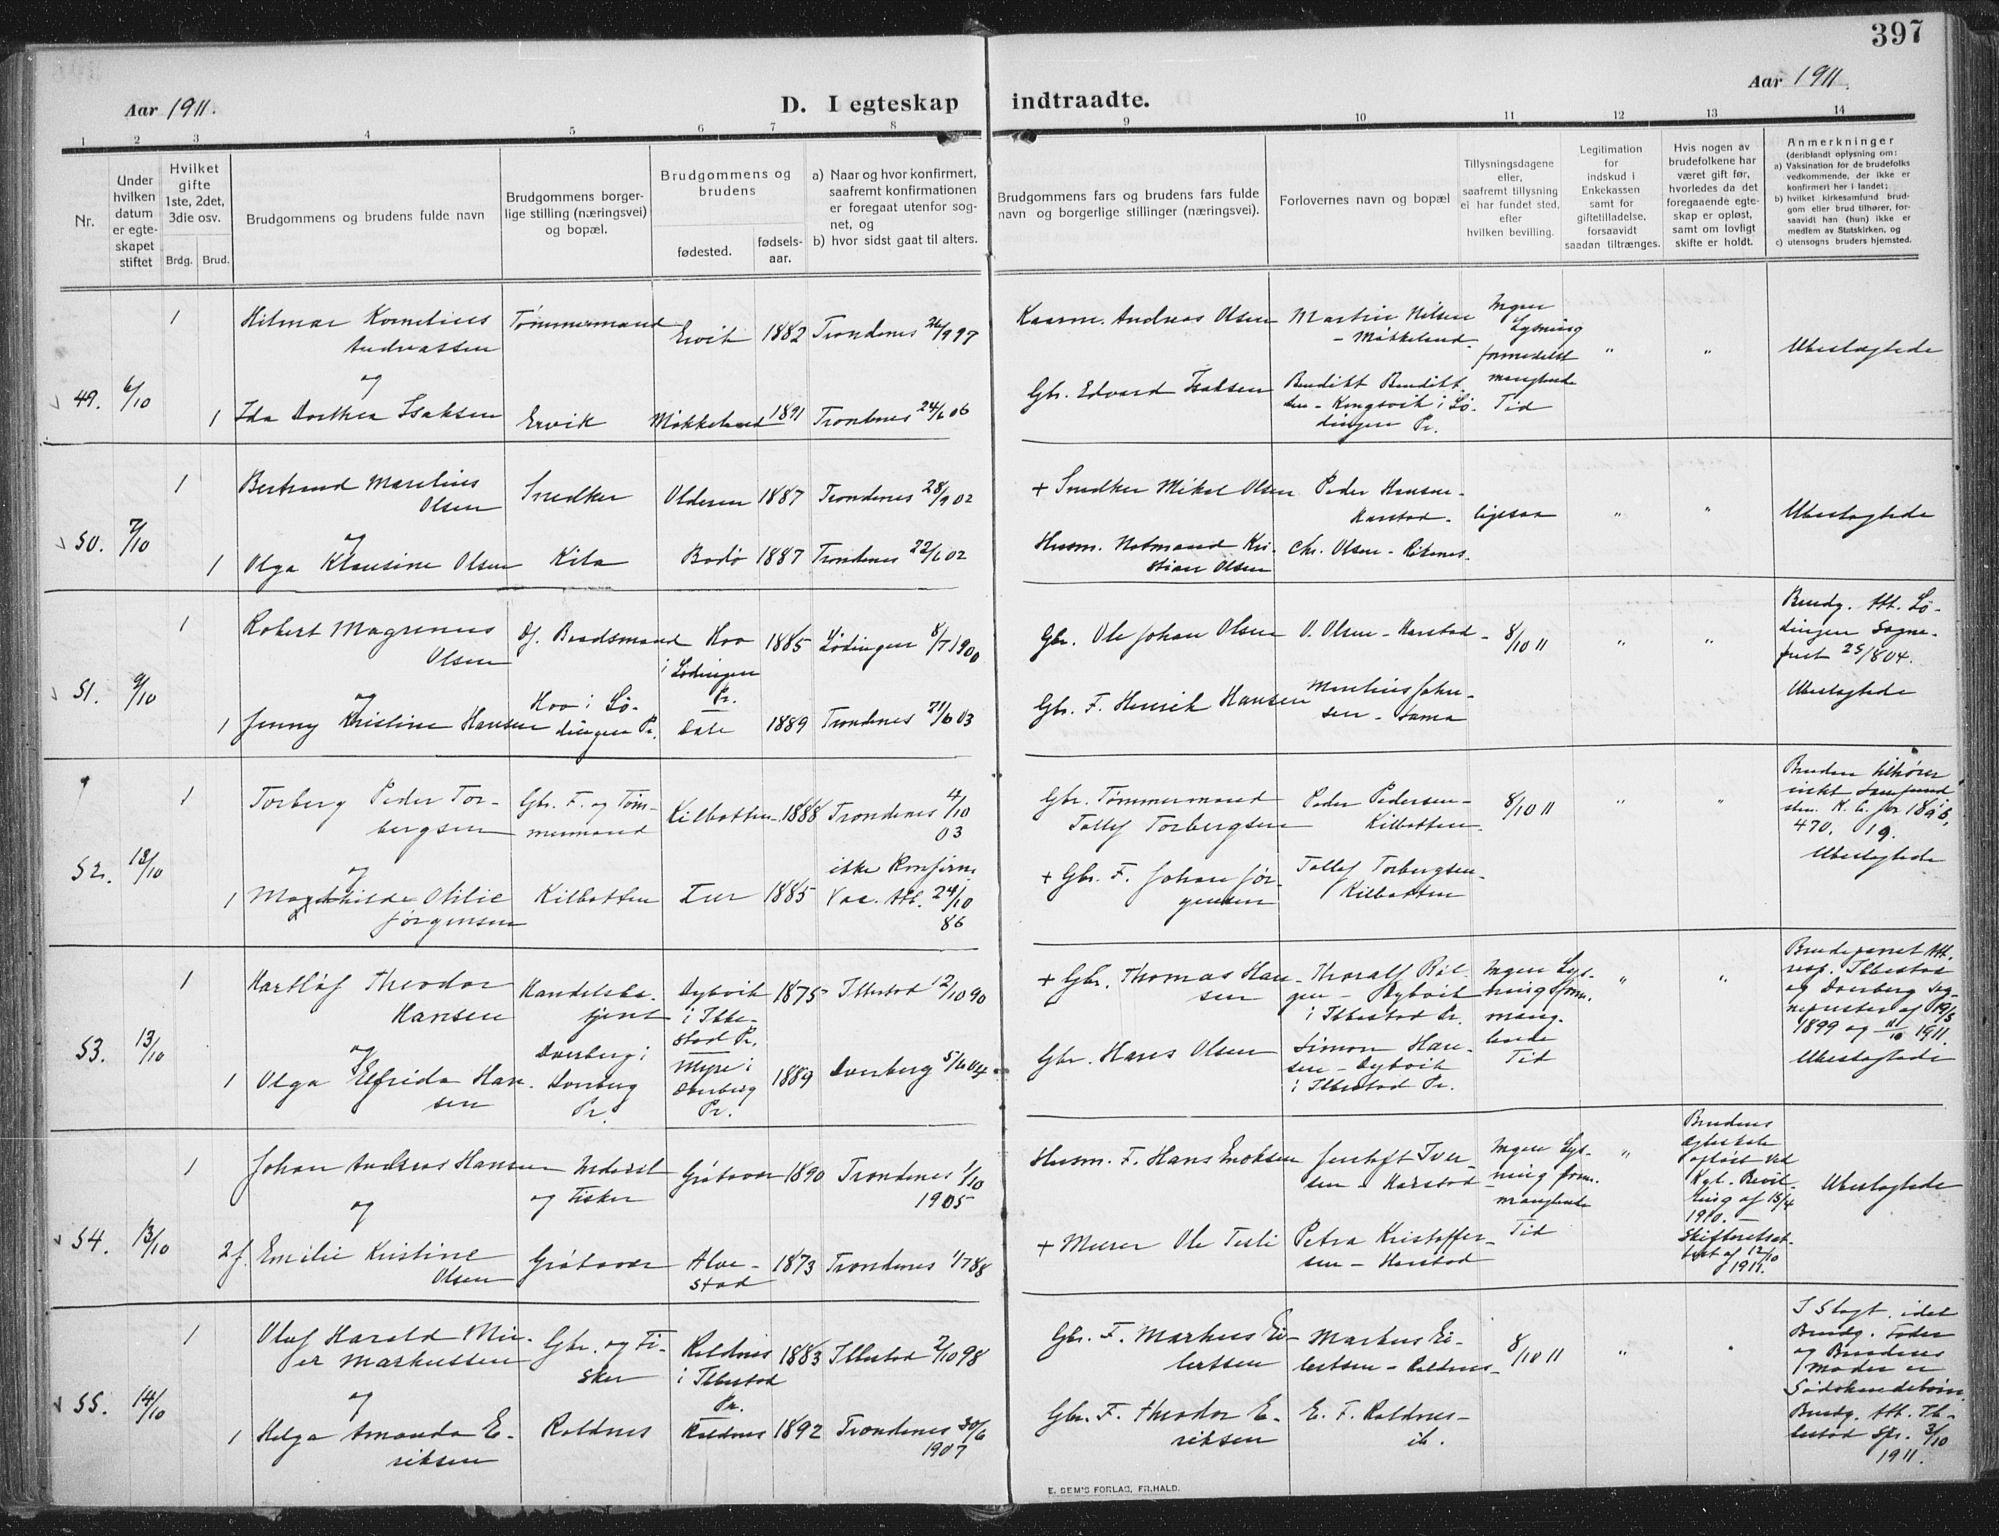 397
Aar 1911.
D. I egteskap indtraadte.
Aar 1911.
1 2 3 4 5 6 7 8 9 10 11 12 13 14
Nr.
Under hvilken datum er egteskapet stiftet
Hvilket gifte 1ste, 2det, 3die osv.
Brdg. Brud.
Brudgommens og brudens fulde navn
Brudgommens borgerlige stilling (næringsvei) og bopæl.
Brudgommens og brudens
fødested.
fødselsaar.
a) Naar og hvor konfirmert, saafremt konfirmationen er foregaat utenfor sognet, og
b) hvor sidst gaat til alters.
Brudgommens fars og brudens fars fulde navn og borgerlige stillinger (næringsvei).
Forlovernes navn og bopæl
Tillysningsdagene eller, saafremt tillysning ei har fundet sted, efter hvilken bevilling.
Legitimation for indskud i Enkekassen samt for giftetilladelse, forsaavidt saadan tiltrænges.
Hvis nogen av brudefolkene har været gift før, hvorledes da det foregaaende egteskap er opløst, samt om lovligt skifte er holdt.
Anmerkninger
(deriblandt oplysning om:
a) Vaksination for de brudefolks vedkommende, der ikke er konfirmert her i landet;
b) hvilket kirkesamfund brudgom eller brud tilhører, forsaavidt han (hun) ikke er medlem av Statskirken, og
c) utensogns bruders hjemsted.
49. 6/10
1 Hilmar Kornelius Andreassen
Tømmermand Ervik 1882 Trondenes 26/9 97
Andreas Olsen
Martin Nilsen - Møkkeland
Ingen Lysning formedelst manglende Tid
" " Ubeslægtede
og
1 Ida Dorthea Isaksen
Ervik Møkkeland 1891 Trondenes 24/6 06
Gbr. Edvard Isaksen
Benedikt Benediktsen - Kongsvik i Lødingen Pr.
50. 7/10
1 Bertrand Marelius Olsen
Snedker Olderen 1887 Trondenes 28/9 02
+ Snedker Mikal Olsen
Peder Hansen - Harstad.
ligesaa " " Ubeslægtede
og
1 Olga Klausine Olsen
Kila Bodø 1887 Trondenes 22/6 02
Husm. Notmand Kristian Olsen
Chr. Olsen -
51. 9/10
1 Robert Magnus Olsen
Baadsmand Hov i Lødingen Pr. 1885 Lødingen 8/7 1900
Gbr. Ole Johan Olsen
O. Olsen - Harstad -
8/10 11 " "
Brudg. Att. Lødingen Sognepræst 25/8 04.
Ubeslægtede
og
1 Jenny Kristine Hansen
Hov i Lødingen Pr. Dale 1889 Trondenes 21/6 03
Gbr. F. Henrik Hansen
Martins Johnsen - Sama
52. 12/10
1 Torberg Peder Torbergsen
Gbr. F. og Tømmermand Kilbotten 1888 Trondenes 4/10 03
Gbr. Tømmermand Tollef Torbergsen
Peder Pedersen - Kilbotten.
8/10 11 " "
Bruden tilhører
470, 19.
Ubeslægtede
og
1 Magnhilde Otilie Jørgensen
Kilbotten 1885 ikke Konfirm. Vac. Att. 24/10 86
+ Gbr. F. Johan Jørgensen
Tollef Torbergsen - Kilbotten
53. 13/10
1 Hartløf Theodor Hansen
Handelsbetjent Dybvik i Ibbestad Pr. 1875 Ibbestad 12/10 90
+ Gbr. Thomas Hansen
Thoralf - Dybvik i Ibbestad Pr.
Ingen Lysning form. manglende Tid
" "
Brudeparret Att. resp. Ibbestad og Dverberg Sognepræster af 19/5 1899 og 11/10 1911.
Ubeslægtede
og
1 Olga Elfrida Hansen
Dverberg i Dverberg Pr. Myre i Dverberg Pr. 1889 Dverberg 5/6 04
Gbr. Hans Olsen
Simon Hansen - Dybvik i Ibbestad Pr.
54. 13/10
1 Johan Andreas Hansen
Inderst og Fisker Grøtavær 1890 Trondenes 1/10 1905
Husm. F. Hans Enoksen
Jentoft Iversen - Harstad
Ingen Lysning form. manglende Tid
"
Brudens Egteskab opløst ved Kgl. Bevilling af 15/4 1910. - Skifteretsattest af 12/10 1911.
Ubeslægtede
og
2 f. Emilie Kristine Olsen
Grøtavær Alvestad 1873 Trondenes 1/7 88
+ Murer Ole Tesli
Petra Kristoffersen - Harstad
55. 14/10
1 Olaf Harald Meier Markussen
Gbr. og Fisker Roldnes i Ibbestad Pr. 1883 Ibbestad 2/10 98
Gbr. F. Markus Eilertsen
Markus Eilertsen - Roldnes -
8/10 11 " "
I Slægt, idet Brudg. Fader og Brudens Moder er Sødskendebørn.
Brudg. Att. Ibbestad Spr. 3/10 1911.
og
1 Helga Amanda Eriksen
Roldnes Roldnes 1892 Trondenes 30/6 1907
Gbr. F. Theodor Eriksen
E. F. Roldnes - ib.
E. SEM'S FORLAG, FR.HALD.